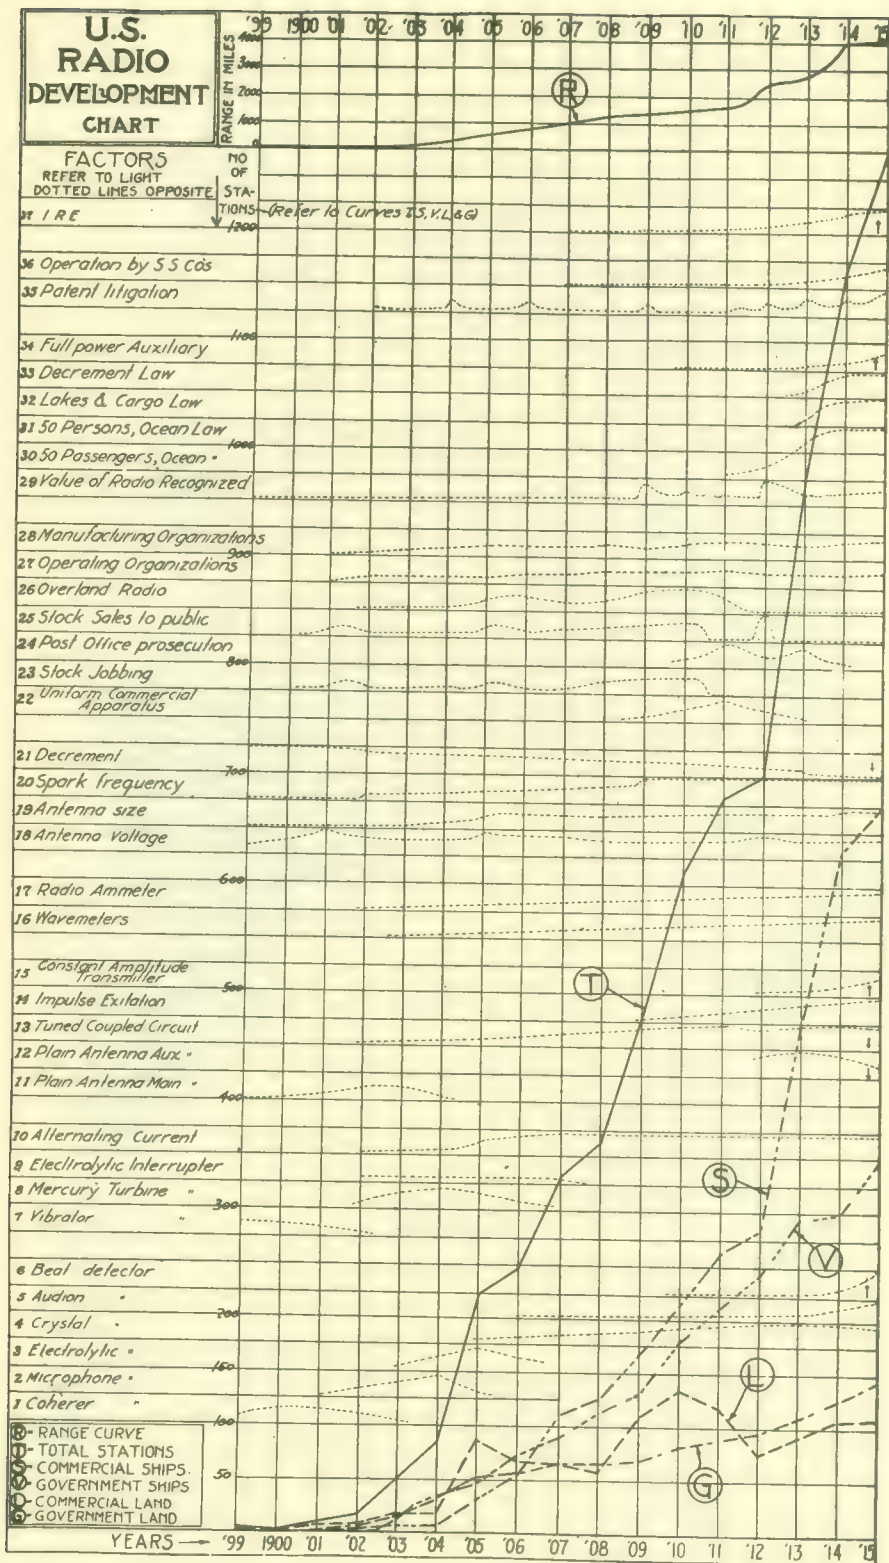 U.S.
RADIO
DEVELOPMENT
CHART
RANGE IN MILES
4000
3000
2000
1000
0
'99 1900 '01 '02 '03 '04 '05 '06 '07 '08 '09 '10 '11 '12 '13 '14 '15
R
FACTORS
REFER TO LIGHT
DOTTED LINES OPPOSITE
NO
OF
STA-
TIONS
(Refer to Curves T,S,V,L&G)
37 I R E
1200
36 Operation by S S Co's
35 Patent litigation
1100
34 Full power Auxiliary
33 Decrement Law
32 Lakes & Cargo Law
31 50 Persons, Ocean Law
1000
30 50 Passengers, Ocean "
29 Value of Radio Recognized
28 Manufacturing Organizations
900
27 Operating Organizations
26 Overland Radio
25 Stock Sales to public
24 Post Office prosecution
800
23 Stock Jobbing
22 Uniform Commercial
Apparatus
21 Decrement
700
20 Spark frequency
19 Antenna size
18 Antenna Voltage
600
17 Radio Ammeter
16 Wavemeters
15 Constant Amplitude
Transmitter
500
T
14 Impulse Exitation
13 Tuned Coupled Circuit
12 Plain Antenna Aux "
11 Plain Antenna Main "
400
10 Alternating Current
9 Electrolytic Interrupter
8 Mercury Turbine "
300
S
7 Vibrator "
V
6 Beat detector
5 Audion "
200
4 Crystal "
3 Electrolytic "
150
2 Microphone "
L
1 Coherer "
100
R - RANGE CURVE
T - TOTAL STATIONS
S - COMMERCIAL SHIPS.
V - GOVERNMENT SHIPS
L - COMMERCIAL LAND
G - GOVERNMENT LAND
50
G
YEARS → '99 1900 '01 '02 '03 '04 '05 '06 '07 '08 '09 '10 '11 '12 '13 '14 '15